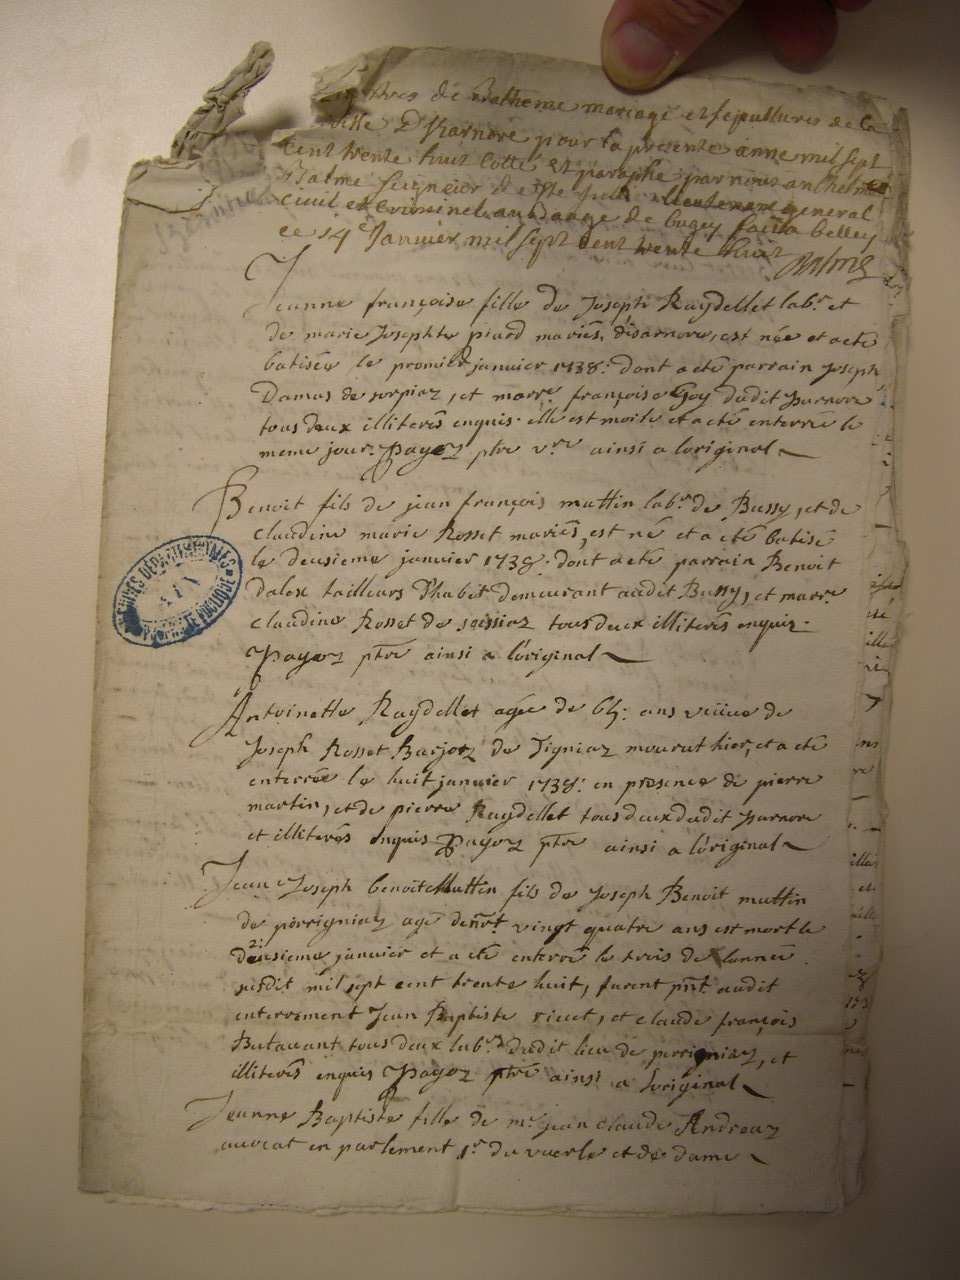 de Batheme mariage et sepultures de la
ville D'Isarnore pour la presente anne mil sept
cent trente huit cotté et paraphé par nous anthelme
Balme seigneur de lieutenant general
civil et criminel au Bailliage de bugey fait a belley
ce 14e Janvier mil sept cent trente huit
Balme
Jeanne françoise fille de Joseph Raydellet labr. et
de marie Josephte piard mariés d'isarnore, est née et a eté
batisée le premier janvier 1738: dont a eté parrain Joseph
Damas de serpiaz, et marre. françoise Goy dudit Isarnore
tous deux illiterés enquis. elle est morte et a eté enterrée le
meme jour. Payez ptre vre. ainsi a l'original
Benoit fils de jean françois mattin labr. de Bussy, et de
claudine marie Rosset mariés, est né et a eté batisé
le deusieme janvier 1738: dont a eté parrain Benoit
Dalex tailleurs d'habit demeurant audit Bussy, et marre.
claudine Rosset de seissiaz tous deux illiterés enquis.
Payez ptre ainsi a l'original
Antoinette Raydellet agée de 65: ans veüve de
Joseph Rosset Barjoz de Tigniaz mourut hier, et a eté
enterrée le huit janvier 1738: en presence de pierre
martin, et de pierre Raydellet tous deux dudit Isarnore
et illiterés enquis Payez ptre ainsi a l'original
Jean Joseph benoit Mattin fils de Joseph Benoit mattin
de perrigniaz agé d'envt. vingt quatre ans est mort le
2: deusieme janvier et a eté enterré le trois de l'année
susdit mil sept cent trente huit, furent pnt. audit
enterrement Jean Baptiste ricut, et claude françois
Butavant tous deux labrs. dudit lieu de perrigniaz, et
illiterés enquis Payez ptre ainsi a l'original
Jeanne Baptiste fille de mr. jean claude Andreaz
avocat en parlement sr. du vuerle et de dame
ARCHIVES DEPARTEMENTALES
AIN